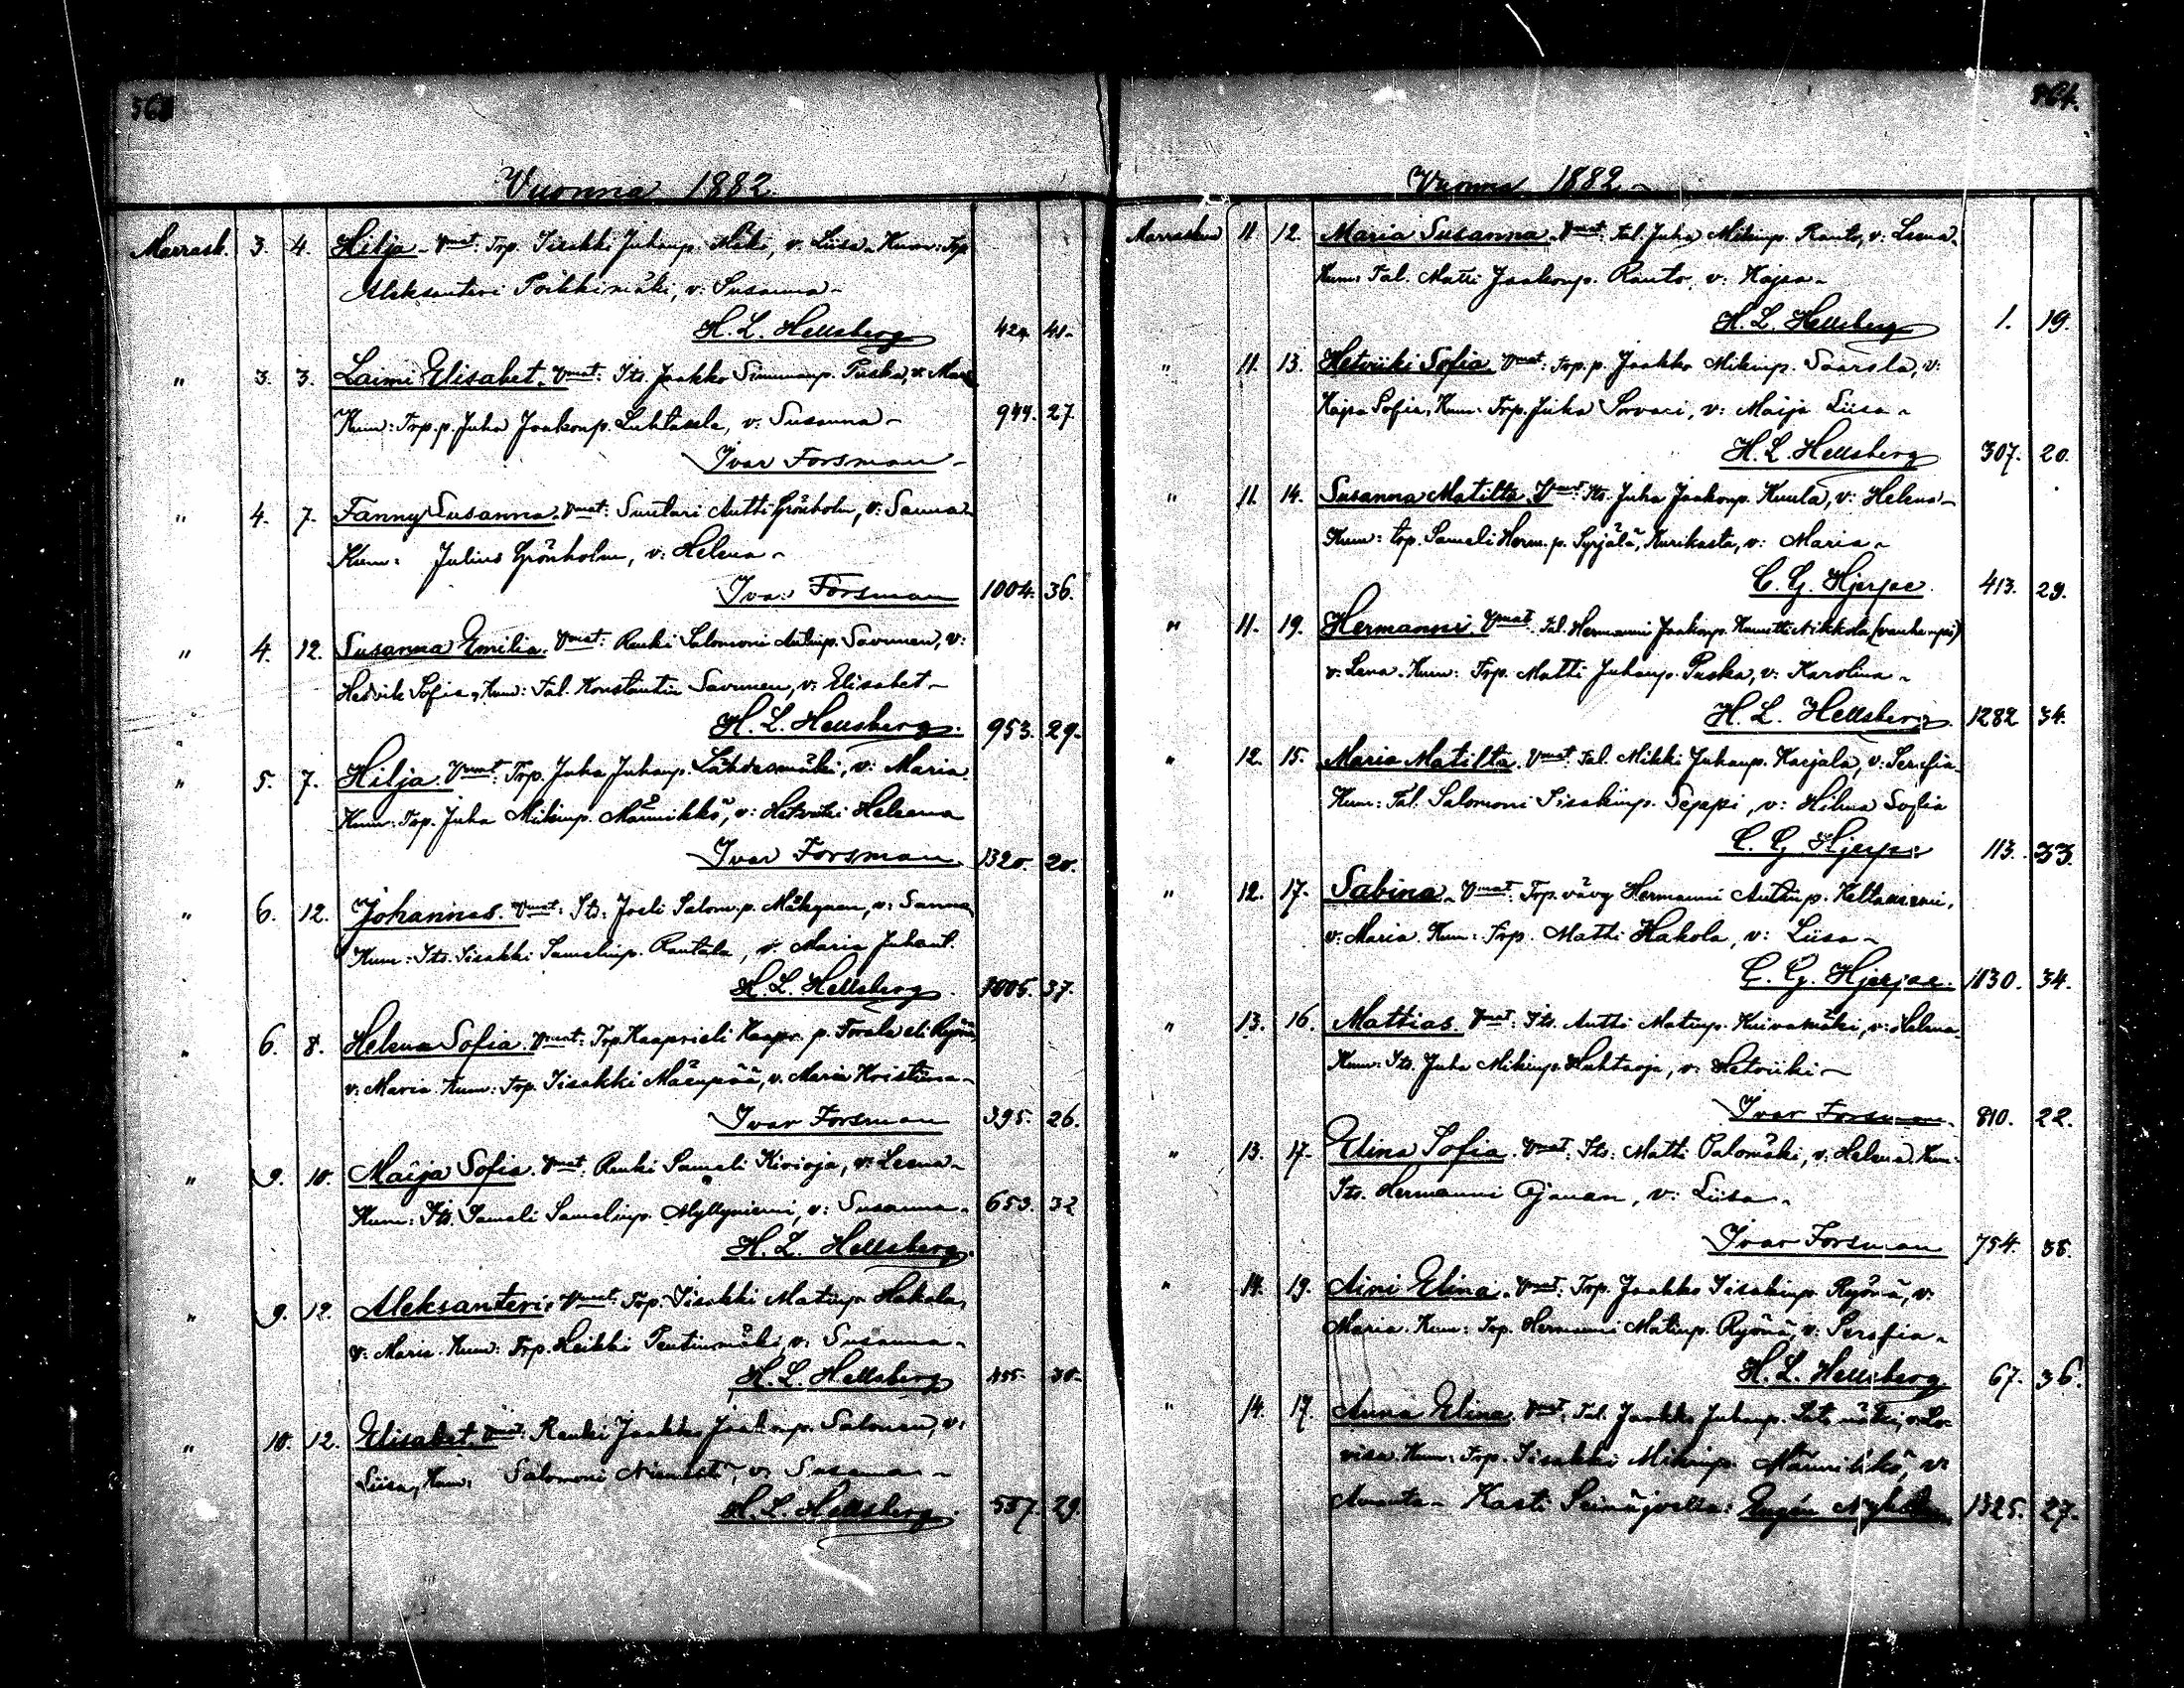 564.
Vuonna 1882.
Marrask. 3. 4. Hilja. Vmat: Trp. Iisakki Juhanp. Mäki, v: Liisa. Kum: Trp.
Aleksanteri Poikkimäki, v: Susanna
H. L. Hellsberg 424 41
" 3. 3. Laimi Elisabet. Vmat: Its. Jaakko Simunanp. Puska, v:
Kum: Trp. p. Juha Jaakonp. Luhtasela, v: Susanna 27
Ivar Forsman
" 4. 7. Fanny Susanna. Vmat: Suutari Antti Grönholm, v: Sanna
Kum: Julius Grönholm, v: Helena
Ivar Forsman 1004. 36.
" 4. 12. Susanna Emilia. Vmat: Renki Salomoni Antinp. Savunen, v:
Hedvik Sofia, Kum: Tal. Konstantin Savunen, v: Elisabet
H. L. Hellsberg. 953. 29.
" 5. 7. Hilja. Vmat: Trp. Juha Juhanp. Lähdesmäki, v: Maria.
Kum: Trp. Juha Mikinp. Männikkö, v: Hetviki Helena
Ivar Forsman. 1320. 20.
" 6. 12. Johannes. Vmat: Its. Joeli Salom. p. Mäkynen, v: Sanna,
Kum: Its. Iisakki Samelinp. Rantala, v: Maria Juhant.
H. L. Hellsberg. 37.
" 6. 8. Helena Sofia. Vmat: Trp. Kaaprieli Kaapr. p. Forsla eli Ryönä
v: Maria. Kum: Trp. Iisakki Mäenpää, v: Maria Kristiina
Ivar Forsman 395. 26.
" 9. 10. Maija Sofia. Vmat: Renki Sameli Kivioja, v: Leena
Kum: Its. Sameli Samelinp. Myllyniemi, v: Susanna. 653. 32
H. L. Hellsberg.
" 9. 12. Aleksanteri. Vmat: Trp. Iisakki Matinp. Hakola,
v: Maria. Kum: Trp. Heikki Pentinmäki, v: Susanna
H. L. Hellsberg
" 10. 12. Elisabet. Vmat: Renki Jaakko Jaakonp. Salonen, v:
Liisa, Kum: Salomoni Niemistö, v: Susanna
H. L. Hellsberg. 557. 29.
Vuonna 1882
Marraskuu 11 12. Maria Susanna. Vmat: Tal. Juha Mikinp. Ranto, v: Leena.
Kum: Tal. Matti Jaakonp. Ranto, v: Kajsa
H. L. Hellsberg 1. 19.
" 11. 13. Hetviiki Sofia. Vmat: Trp. p. Jaakko Mikinp. Saarsla, v:
Kajsa Sofia, Kum: Trp. Juha Sorvari, v: Maija Liisa
H. L. Hellsberg 307. 20.
" 11. 14. Susanna Matilta. Vmat: Its. Juha Jaakonp. Kuula, v: Helena
Kum: trp. Sameli Herm. p. Syrjälä, Kurikasta, v: Maria
C. G. Hjerpe. 413. 29.
" 11. 19. Hermanni Vmat. Tal. Hermanni Jaakonp. Kunetti Nikkola (vanhempi)
v: Lena. Kum: Trp. Matti Juhanp. Puska, v: Karolina
H. L. Hellsberg 1282 34.
" 12. 15. Maria Matilta. Vmat: Tal. Mikki Juhanp. Karjala, v: Serefia.
Kum: Tal. Salomoni Iisakinp. Seppi, v: Hilma Sofia
C. G. Hjerpe 113. 33.
" 12. 17. Sabina. Vmat: Trp. vävy Hermanni Antinp. Keltaniemi,
v: Maria. Kum: Trp. Matti Hakola, v: Liisa
C. G. Hjerpe. 1030. 34.
" 13. 16. Mattias. Vmat: Its. Antti Matinp. Kuivamäki, v: Helena.
Kum: Its. Juha Mikinp. Huhtaoja, v: Hetviiki
Ivar Forsman. 810. 22.
" 13. 17. Elina Sofia. Vmat: Its. Matti Palomäki, v: Helena. Kum:
Its. Hermanni Ojanen, v: Liisa.
Ivar Forsman 754. 35.
" 14. 19. Aini Elina. Vmat: Trp. Jaakko Iisakinp. Ryönä, v:
Maria. Kum: Trp. Hermanni Matinp. Ryönä, v: Serefia
H. L. Hellsberg 67. 36.
" 14. 17. Anna Elina. Vmat: Tal. Jaakko Juhanp. v: Lo-
visa. Kum: Trp. Iisakki Mikinp. Männikkö, v:
Amanta. Kasti Seinäjoella: 1325. 27.